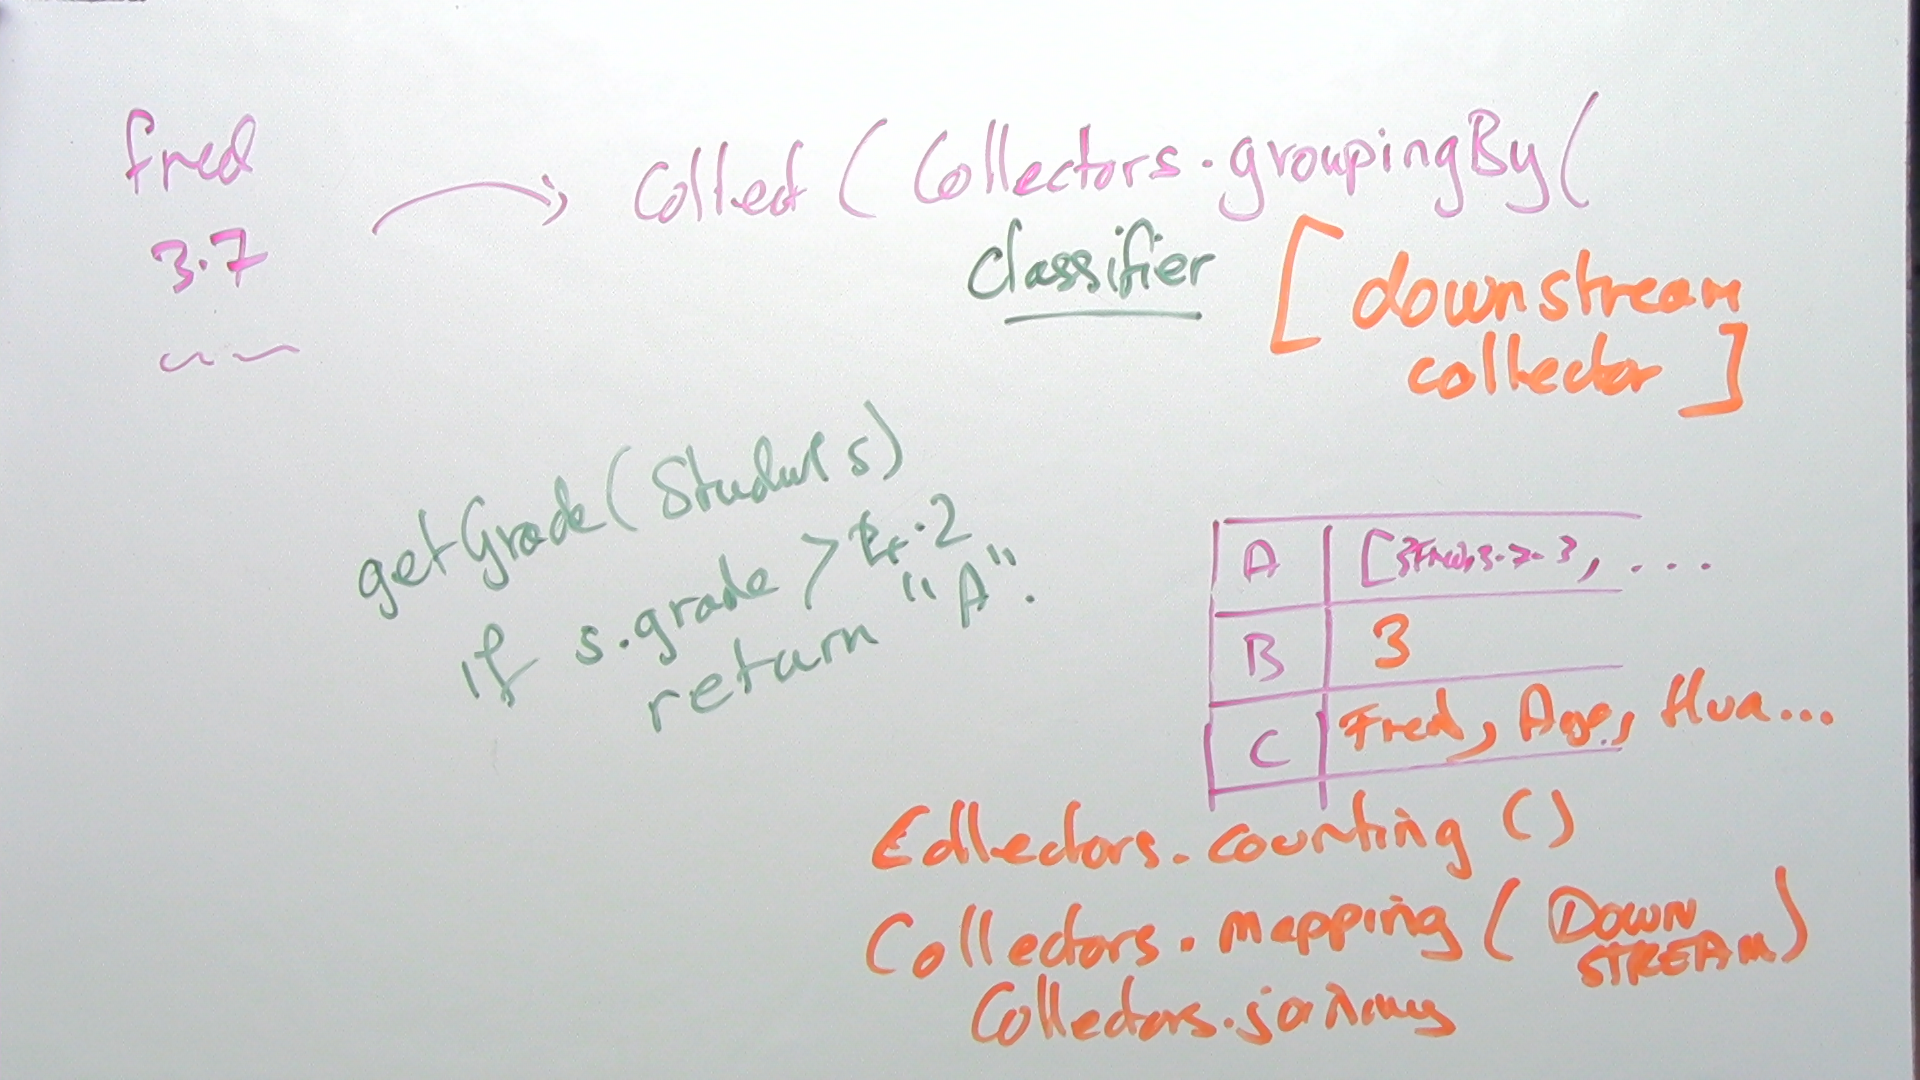 fred
3.7
collect ( Collectors.groupingBy(
classifier [ downstream
collector ]
getGrade(Student s)
if s.grade > .2
return "A".
A [{Fred, 3.7}, ....
B 3
C Fred, , Hua...
Collectors.counting ()
Collectors.mapping ( DOWN
STREAM)
Collectors.joining